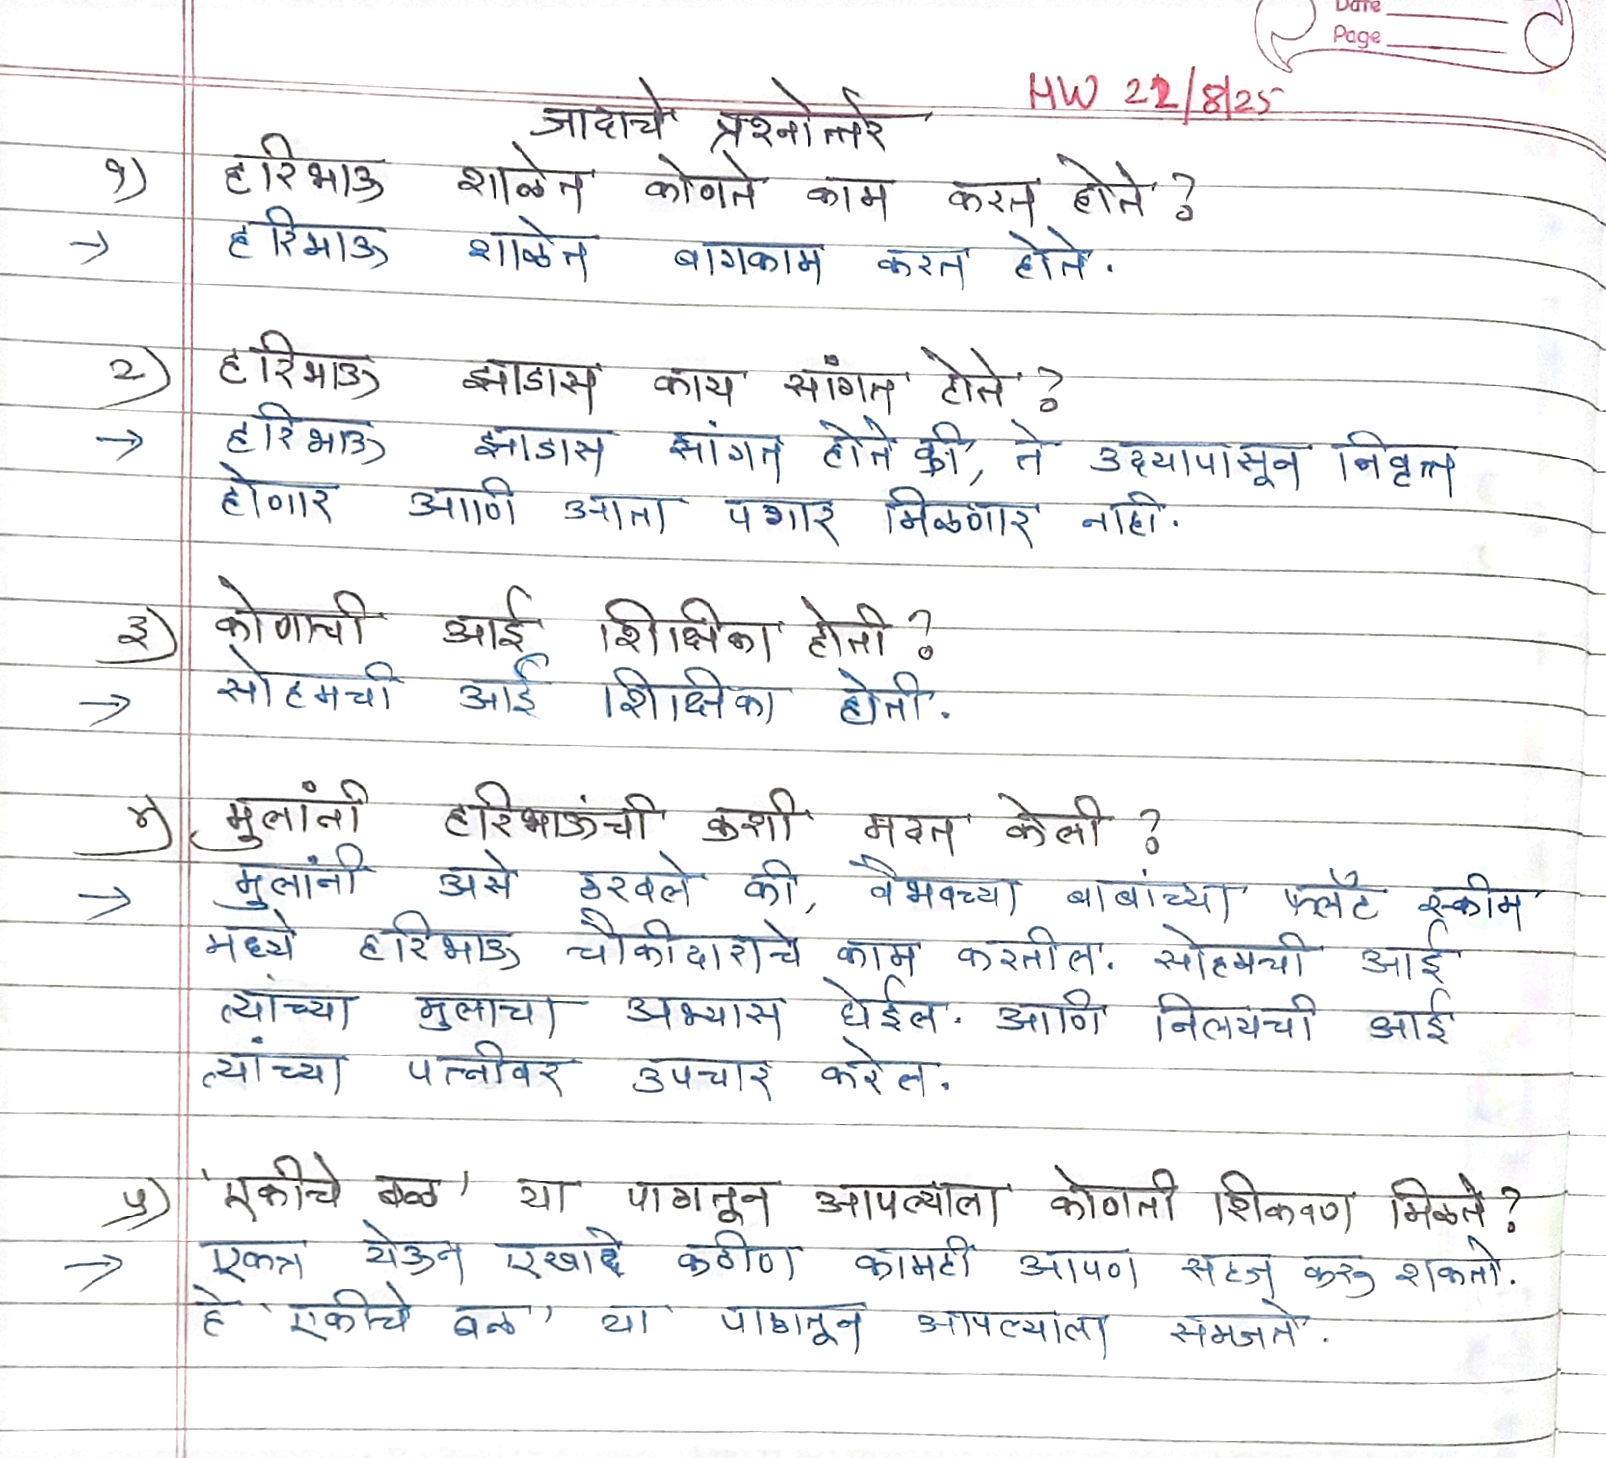 Date
Page
HW 22/8/25
जादाचे प्रश्नोत्तरे
१) हरिभाऊ शाळेत कोणते काम करत होते ?
→ हरिभाऊ शाळेत बागकाम करत होते.
२) हरिभाऊ झाडास काय सांगत होते ?
→ हरिभाऊ झाडास सांगत होते की, ते उद्यापासून निवृत्त
होणार आणि आता पगार मिळणार नाही.
३) कोणाची आई शिक्षिका होती ?
→ सोहमची आई शिक्षिका होती.
४) मुलांनी हरिभाऊंची कशी मदत केली ?
→ मुलांनी असे ठरवले की, वैभवच्या बाबांच्या फ्लॅट स्कीम
मध्ये हरिभाऊ चौकीदाराचे काम करतील. सोहमची आई
त्यांच्या मुलाचा अभ्यास घेईल. आणि निलयची आई
त्यांच्या पत्नीवर उपचार करेल.
५) 'एकीचे बळ' या पाठातून आपल्याला कोणती शिकवण मिळते ?
→ एकत्र येऊन एखादे कठीण कामही आपण सहज करू शकतो.
हे 'एकीचे बळ' या पाठातून आपल्याला समजते.